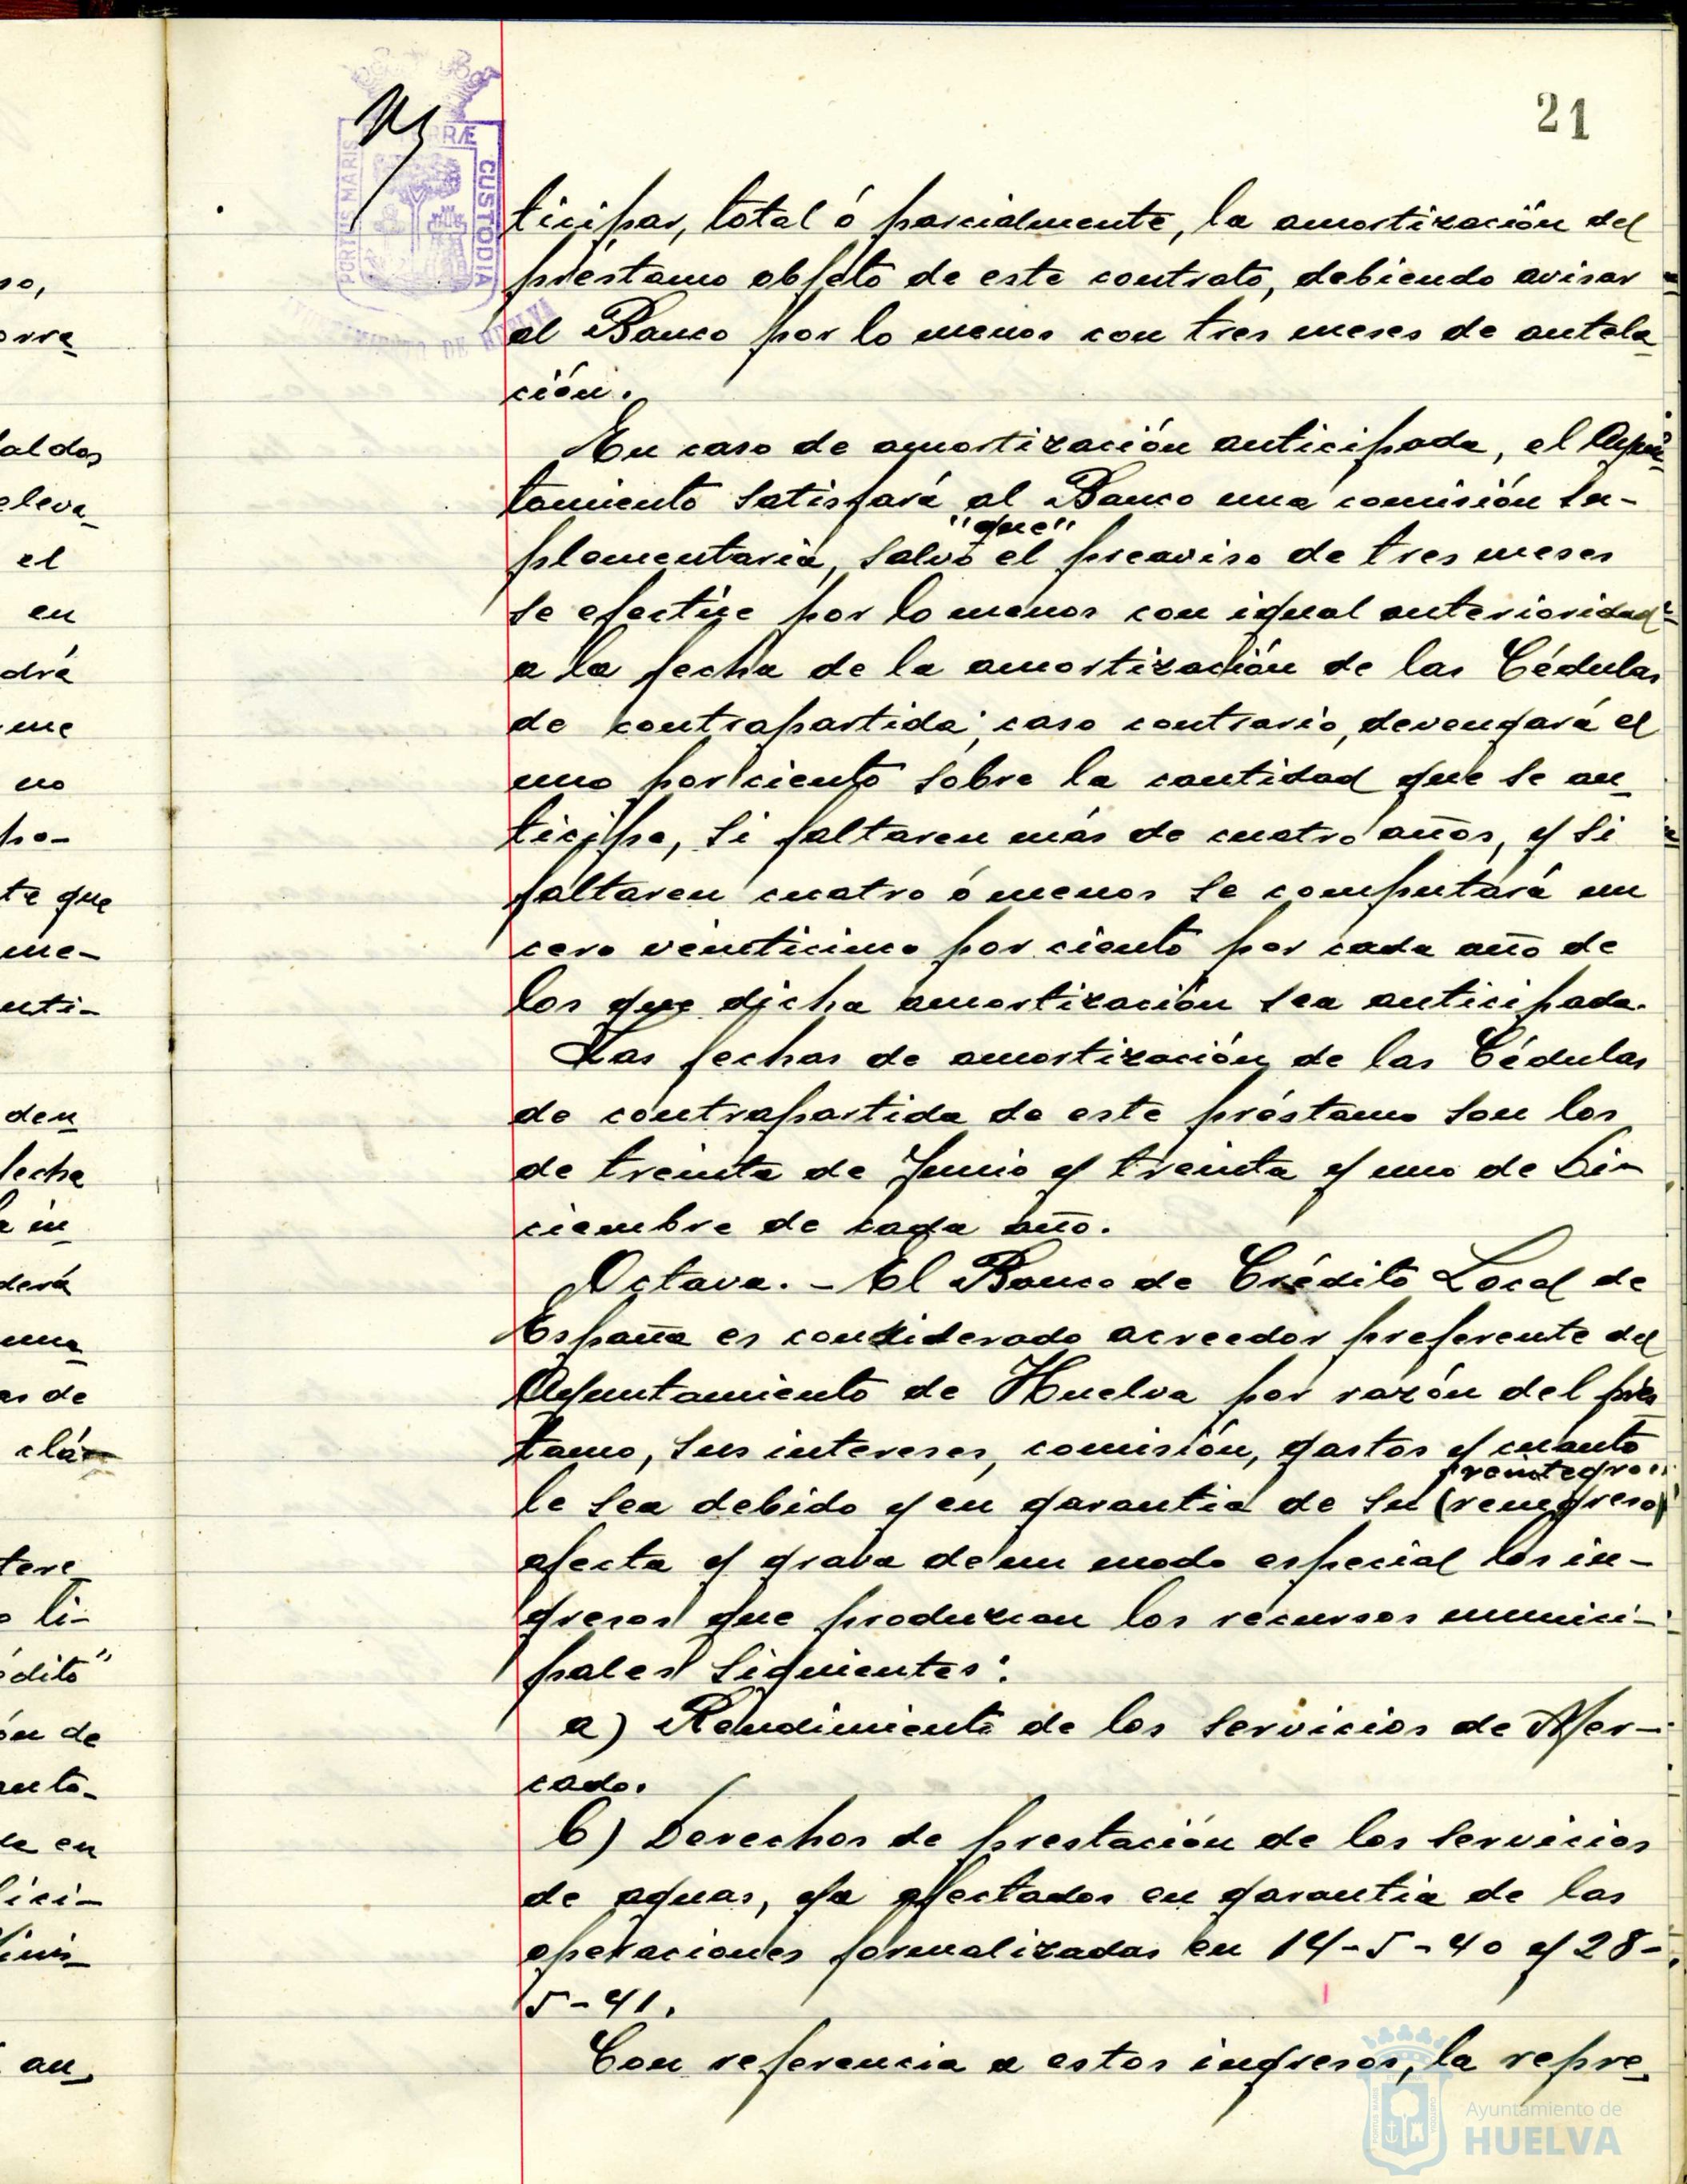 21
PORTUS MARIS
TERRÆ
CUSTODIA
AYUNTAMIENTO DE HUELVA
ticipar, total ó parcialmente, la amortización del
préstamo objeto de este contrato, debiendo avisar
al Banco por lo menos con tres meses de antela_
ción.
En caso de amortización anticipada, el Ayun_
tamiento satisfará al Banco una comisión su-
"que"
plementaria, salvo el preaviso de tres meses
se efectúe por lo menos con igual anterioridad
a la fecha de la amortización de las Cédulas
de contrapartida; caso contrario, devengará el
uno por ciento sobre la cantidad que se an_
ticipe, si faltaren más de cuatro años, y si
faltaren cuatro ó menos se computará un
cero veinticinco por ciento por cada año de
los que dicha amortización sea anticipada.
Las fechas de amortización de las Cédulas
de contrapartida de este préstamo son los
de treinta de Junio y treinta y uno de Di-
ciembre de cada año.
Octava. - El Banco de Crédito Local de
España es considerado acreedor preferente del
Ayuntamiento de Huelva por razón del prés_
tamo, sus intereses, comisión, gastos y cuanto
"reintegro"
le sea debido y en garantia de su (reingreso)
afecta y grava de un modo especial los in-
gresos que produzcan los recursos munici-
pales siguientes:
a) Rendimiento de los servicios de Mer-
cado.
b) Derechos de prestación de los servicios
de aguas, ya afectados en garantia de las
operaciones formalizadas en 14-5-40 y 28-
5-41.
Con referencia a estos ingresos, la repre_
Ayuntamiento de
HUELVA